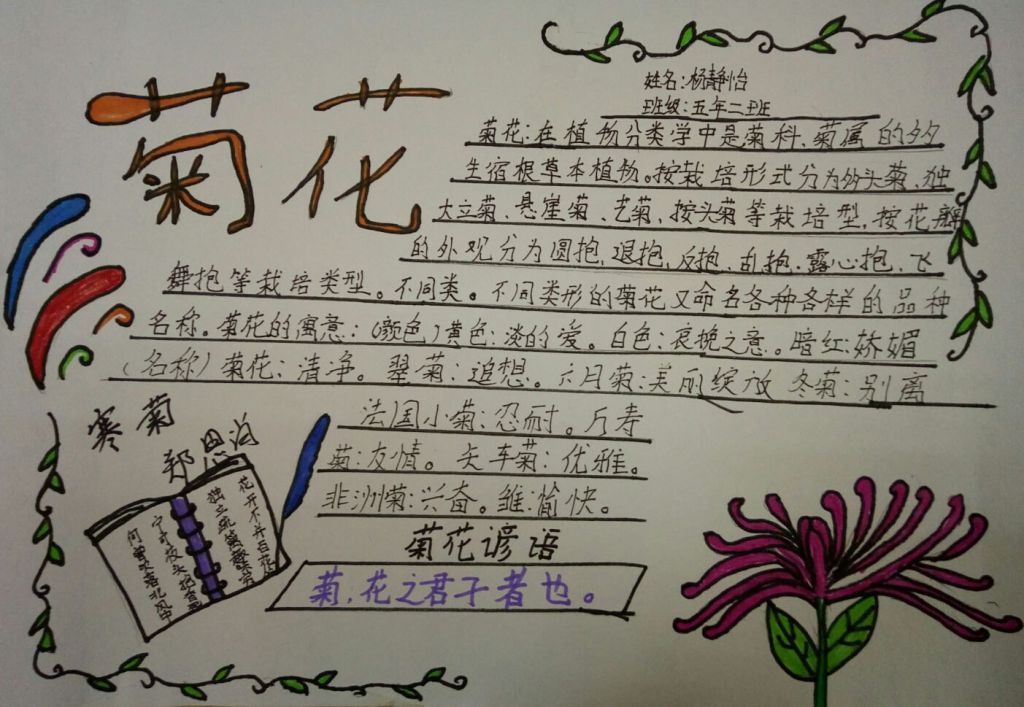 菊花
姓名:杨静怡
班级:五年二班
菊花:在植物分类学中是菊科、菊属的多
生宿根草本植物。按栽培形式分为多头菊、独
大立菊、悬崖菊、艺菊、按头菊等栽培型,按花瓣
的外观分为圆抱,退抱,反抱、乱抱、露心抱、飞
舞抱等栽培类型。不同类。不同类形的菊花又命名各种各样的品种
名称。菊花的寓意:(颜色)黄色:淡的爱。白色:哀挽之意。暗红:娇媚
(名称)菊花:清净。翠菊:追想。六月菊:美丽绽放 冬菊:别离
法国小菊:忍耐。万寿
菊:友情。矢车菊:优雅。
非洲菊:兴奋。雏:愉快。
寒菊
郑思肖
花开不并百花
独立疏篱趣未穷
宁可枝头抱香死
何曾吹落北风中
菊花谚语
菊,花之君子者也。